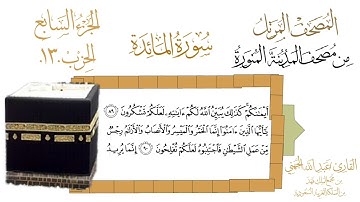 المصحف المرتل
من مصحف المدينة المنورة
سورة المائدة
الجزء السابع
الحزب ١٣.
أَيْمَٰنَكُمْ كَذَٰلِكَ يُبَيِّنُ ٱللَّهُ لَكُمْ ءَايَٰتِهِۦ لَعَلَّكُمْ تَشْكُرُونَ ٨٩
يَٰٓأَيُّهَا ٱلَّذِينَ ءَامَنُوٓا۟ إِنَّمَا ٱلْخَمْرُ وَٱلْمَيْسِرُ وَٱلْأَنصَابُ وَٱلْأَزْلَٰمُ رِجْسٌ
مِّنْ عَمَلِ ٱلشَّيْطَٰنِ فَٱجْتَنِبُوهُ لَعَلَّكُمْ تُفْلِحُونَ ٩٠ إِنَّمَا يُرِيدُ
القارئ عبد الله الجهني